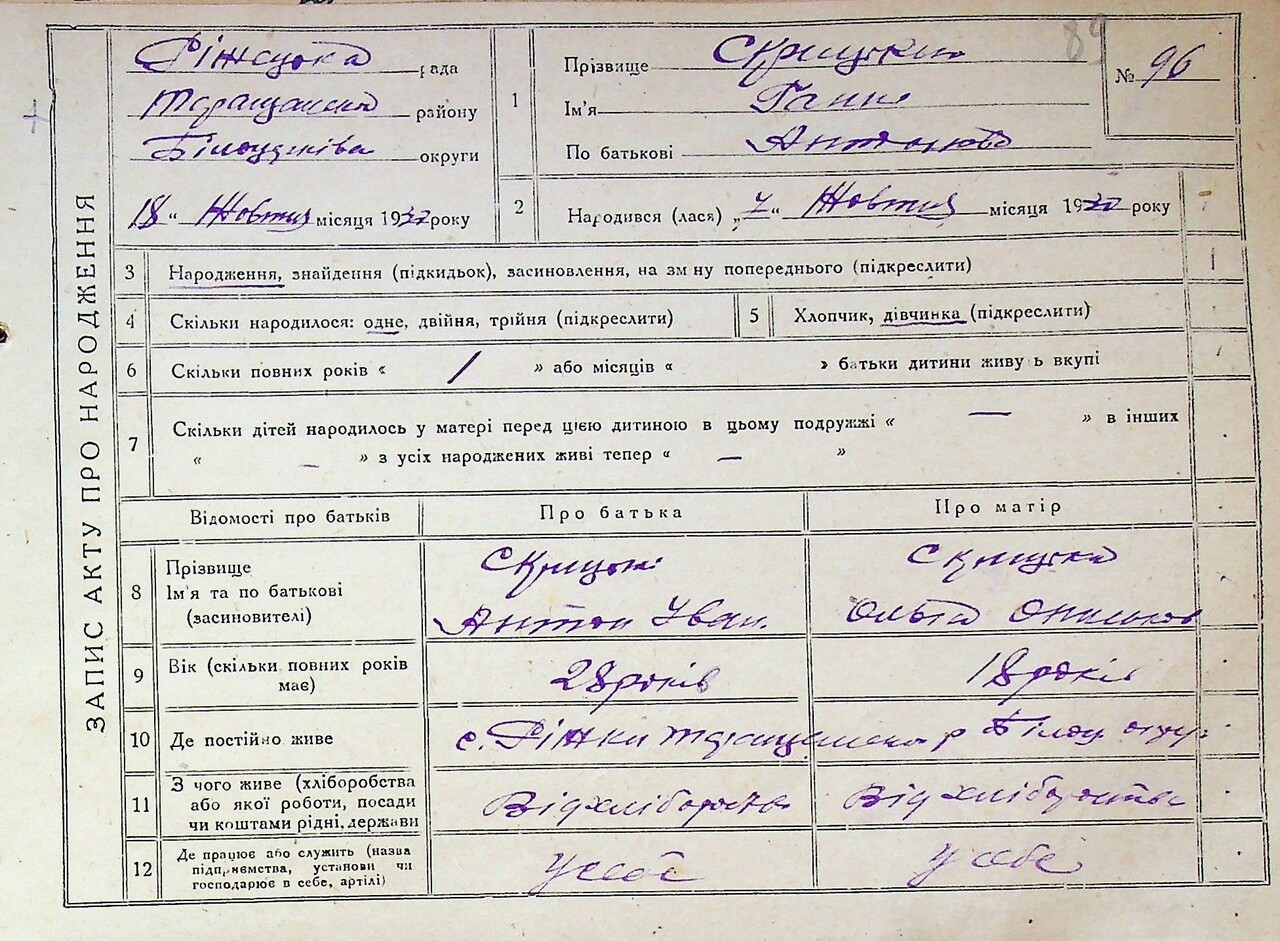 ЗАПИС АКТУ ПРО НАРОДЖЕННЯ
рада
району
округи
18 " Жовтня місяця 19 року
1
Прізвище
Ім'я Ганна
По батькові Антонівна
№ 96
89
2
Народився (лася) „7" Жовтня місяця 19 року
3 Народження, знайдення (підкидьок), засиновлення, на зм ну попереднього (підкреслити)
4 Скільки народилося: одне, двійня, трійня (підкреслити)
5 Хлопчик, дівчинка (підкреслити)
6 Скільки повних років « / » або місяців « » батьки дитини живу ь вкупі
7 Скільки дітей народилось у матері перед цією дитиною в цьому подружжі « — » в інших
« — » з усіх народжених живі тепер « — »
Відомості про батьків Про батька Про матір
8
Прізвище
Ім'я та по батькові
(засиновителі)
Скрицька
Антон Іван. Ольга
9
Вік (скільки повних років
має)
28 років 18 років
10 Де постійно живе с. Ріжки
11
З чого живе (хліборобства
або якої роботи, посади
чи коштами рідні, держави
Від хліборобства Від хліборобства
12
Де працює або служить (назва
підприємства, установи чи
господарює в себе, артілі)
у себе у себе